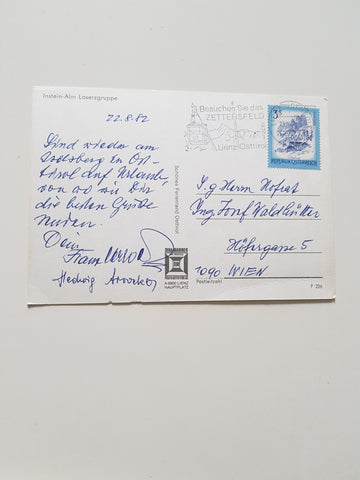 Instein-Alm Laserzgruppe
22.8.82
Sind wieder am
in Ost-
tirol auf Urlaub
von wo wir Dir
die besten Grüße
senden.
Dein
Franz
Hedwig
Schönes Ferienland Osttirol
A 9900 LIENZ
HAUPTPLATZ
Besuchen Sie das
ZETTERSFELD
Lienz-Osttirol
3 S
REPUBLIK ÖSTERREICH
S.g. Herrn Hofrat
Ing. Josef Waldhütter
Höfergasse 5
1090 WIEN
Postleitzahl
P 226